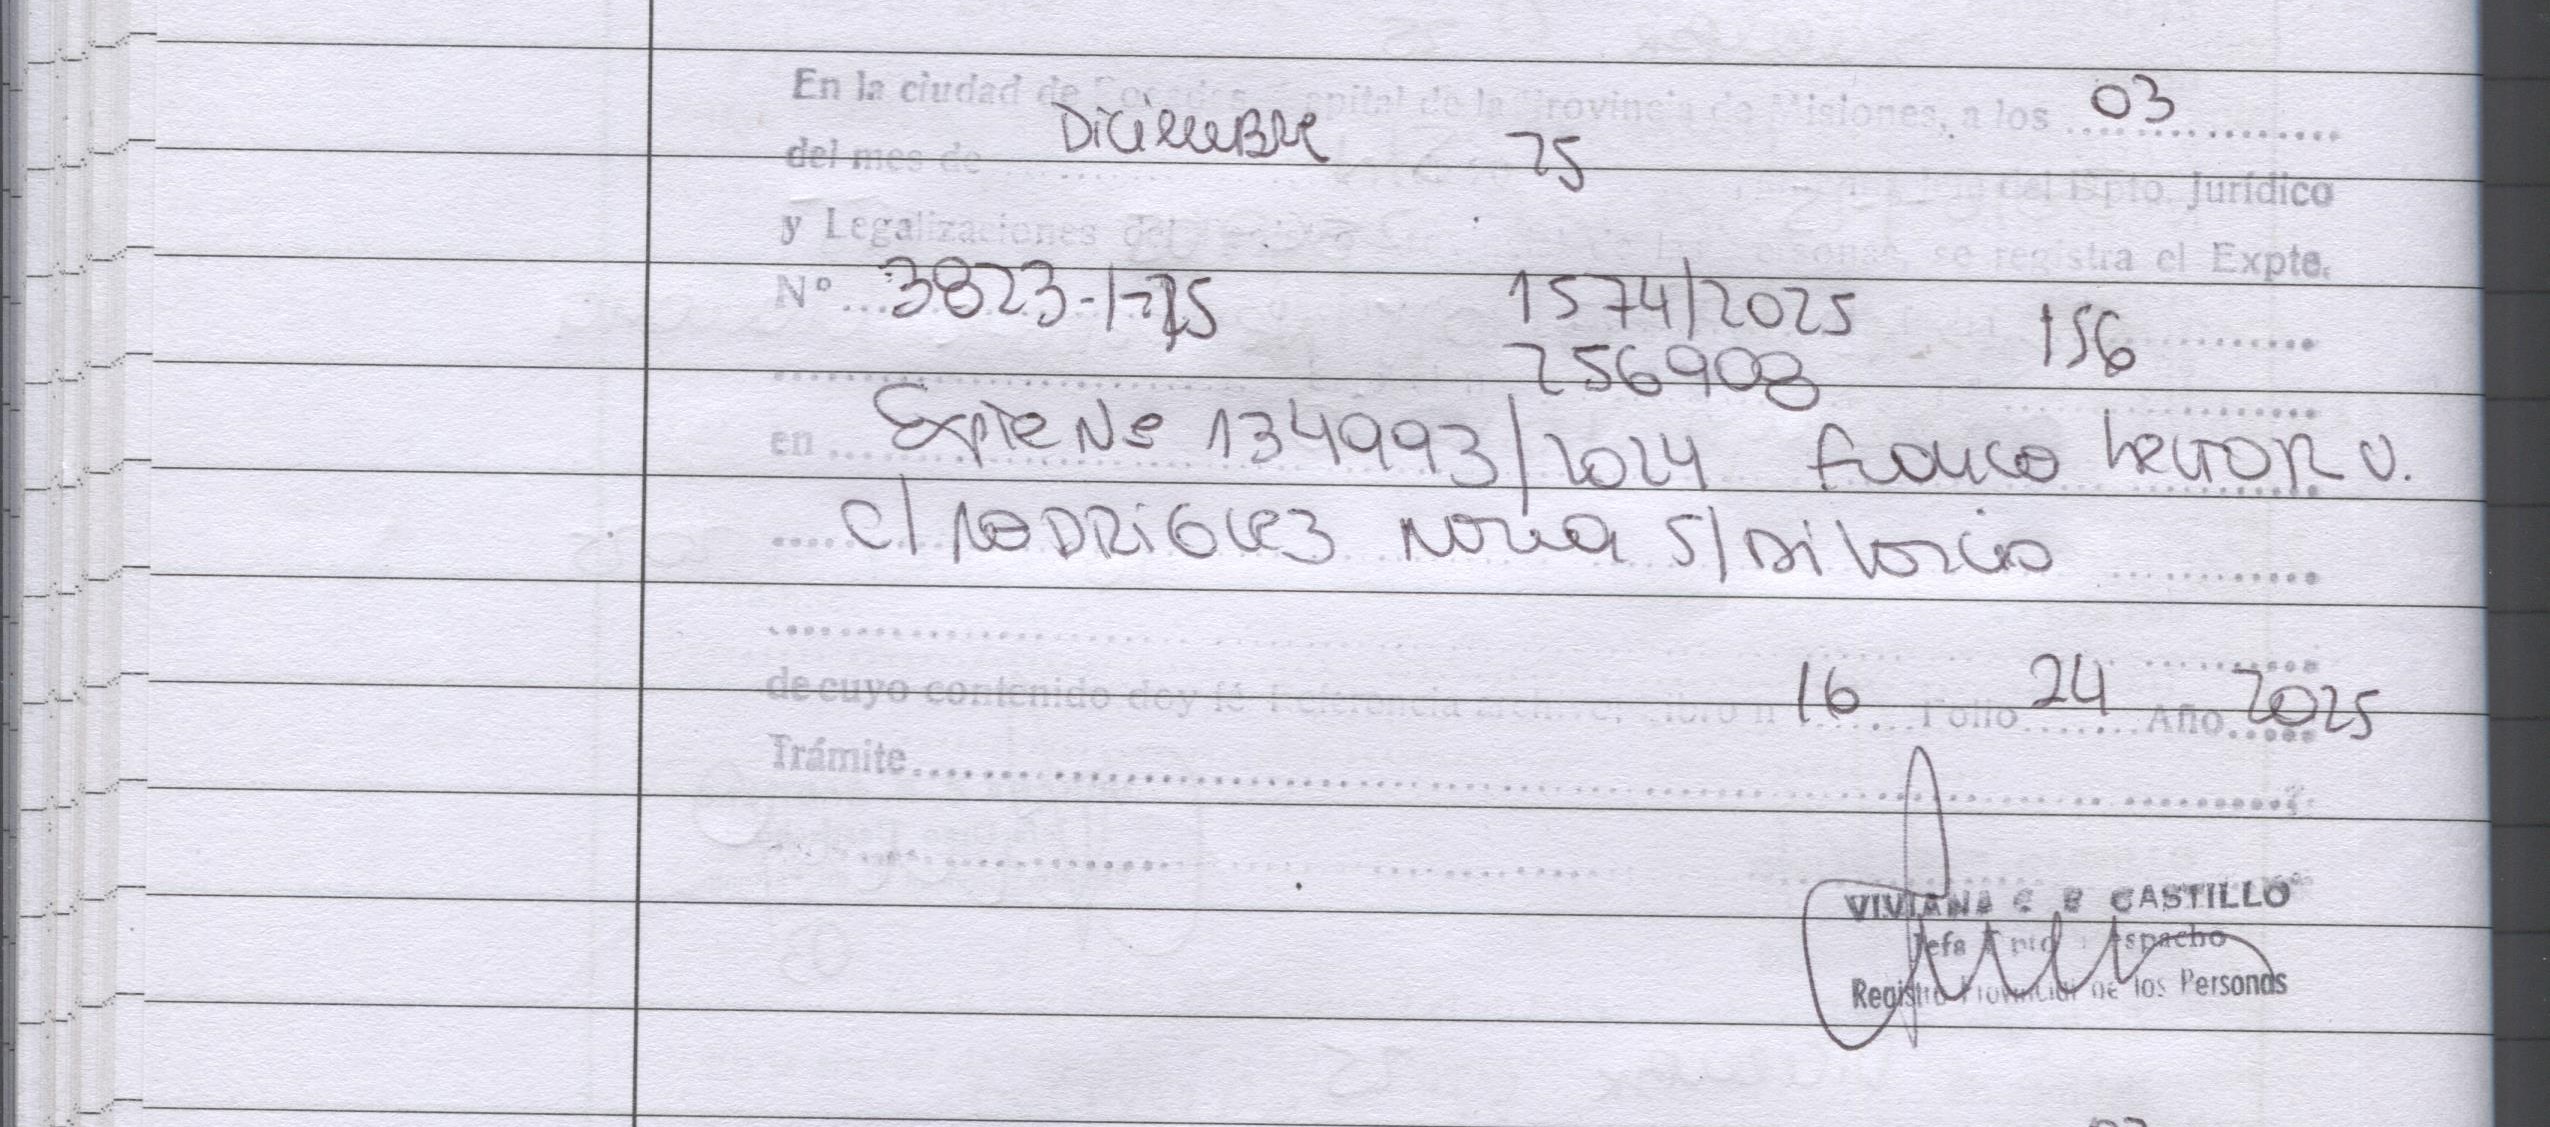 En la ciudad de Posadas, Capital de la Provincia de Misiones, a los 03
del mes de Diciembre 25 del Dpto. Jurídico
y Legalizaciones del las Personas, se registra el Expte.
Nº 3823-I-25 1574/2025 156
256908
en Expte Nº 134993/2024 Franco Hector V.
c/ RODRIGUEZ Noria S/ Divorcio
de cuyo contenido doy fé Referencia archivo: Libro n 16 Folio 24 Año 2025
Trámite
VIVIANA C B CASTILLO
Jefa Dpto Despacho
Registro Provincial de los Personas